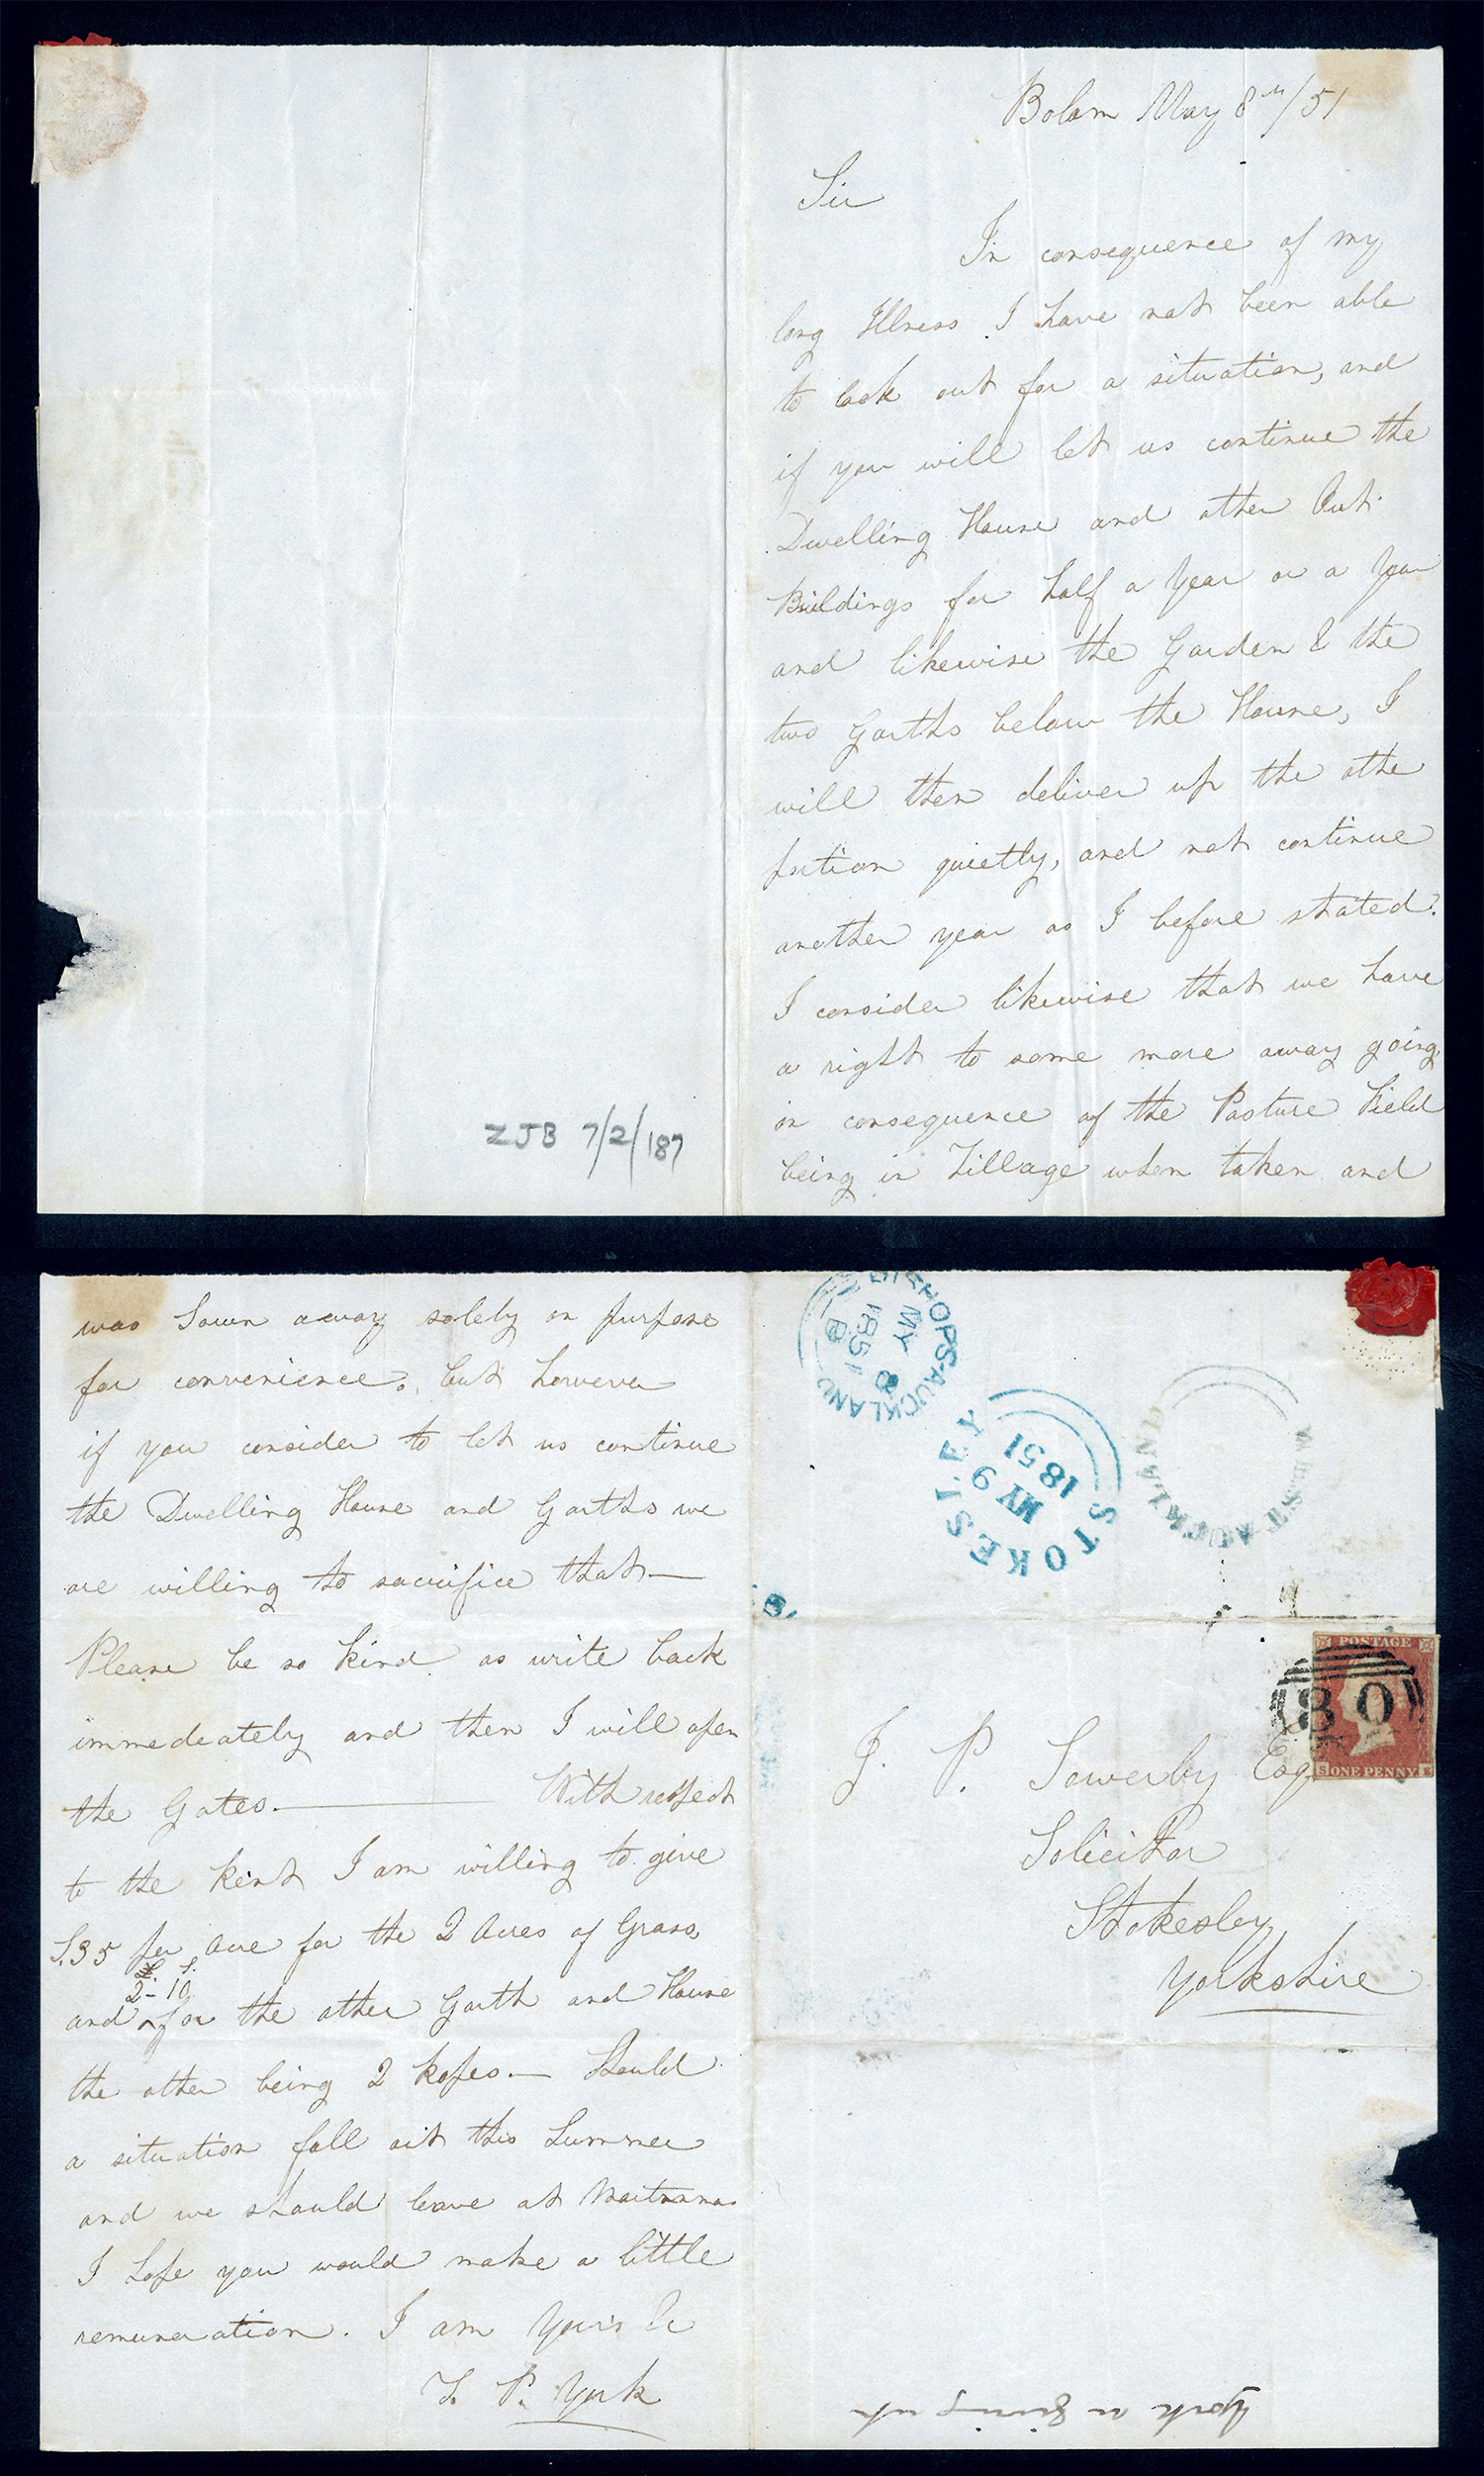 Bolam May 8th/51
Sir
In consequence of my
long Illness I have not been able
to look out for a situation, and
if you will let us continue the
Dwelling House and other Out
Buildings for half a Year or a Year
and likewise the Garden & the
two Garths below the House, I
will then deliver up the othe
portion quietly, and not continue
another year as I before stated.
I consider likewise that we have
a right to some more away going
in consequence of the Pasture Field
being in Tillage when taken and
ZJB 7/2/187
was Sown away solely on purpose
for convenience. but however
if you consider to let us continue
the Dwelling House and Garths we
are willing to sacrifice that —
Please be so kind as write back
immedeately and then I will open
the Gates. — With respect
to the Rent I am willing to give
S.35 per Acre for the 2 Acres of Grass,
£. S.
2-10
and ^ for the other Garth and House
the other being 2 Ropes — Should
a situation fall out this Summer
and we should leave at
I hope you would make a little
remuneration. I am Yours &c
T. P. York
BISHOPS-AUCKLAND
MY 8
1851
B
STOKESLEY
MY 9
1851
WEST AUCKLAND
POSTAGE
80
S ONE PENNY E
J. P. Sowerby Esq
Solicitor
Stokesley
Yorkshire
York on giving up